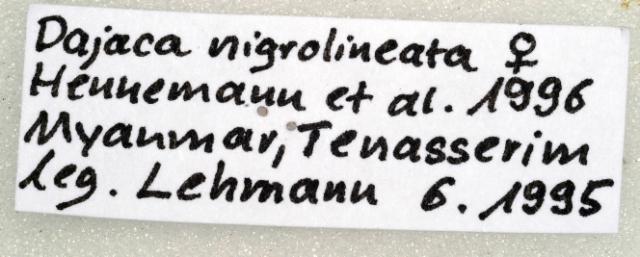 Dajaca nigrolineata ♀
Hennemann et al. 1996
Myanmar, Tenasserim
leg. Lehmann 6. 1995